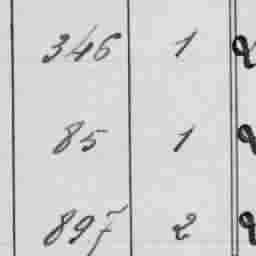 346 1
85 1
897 2